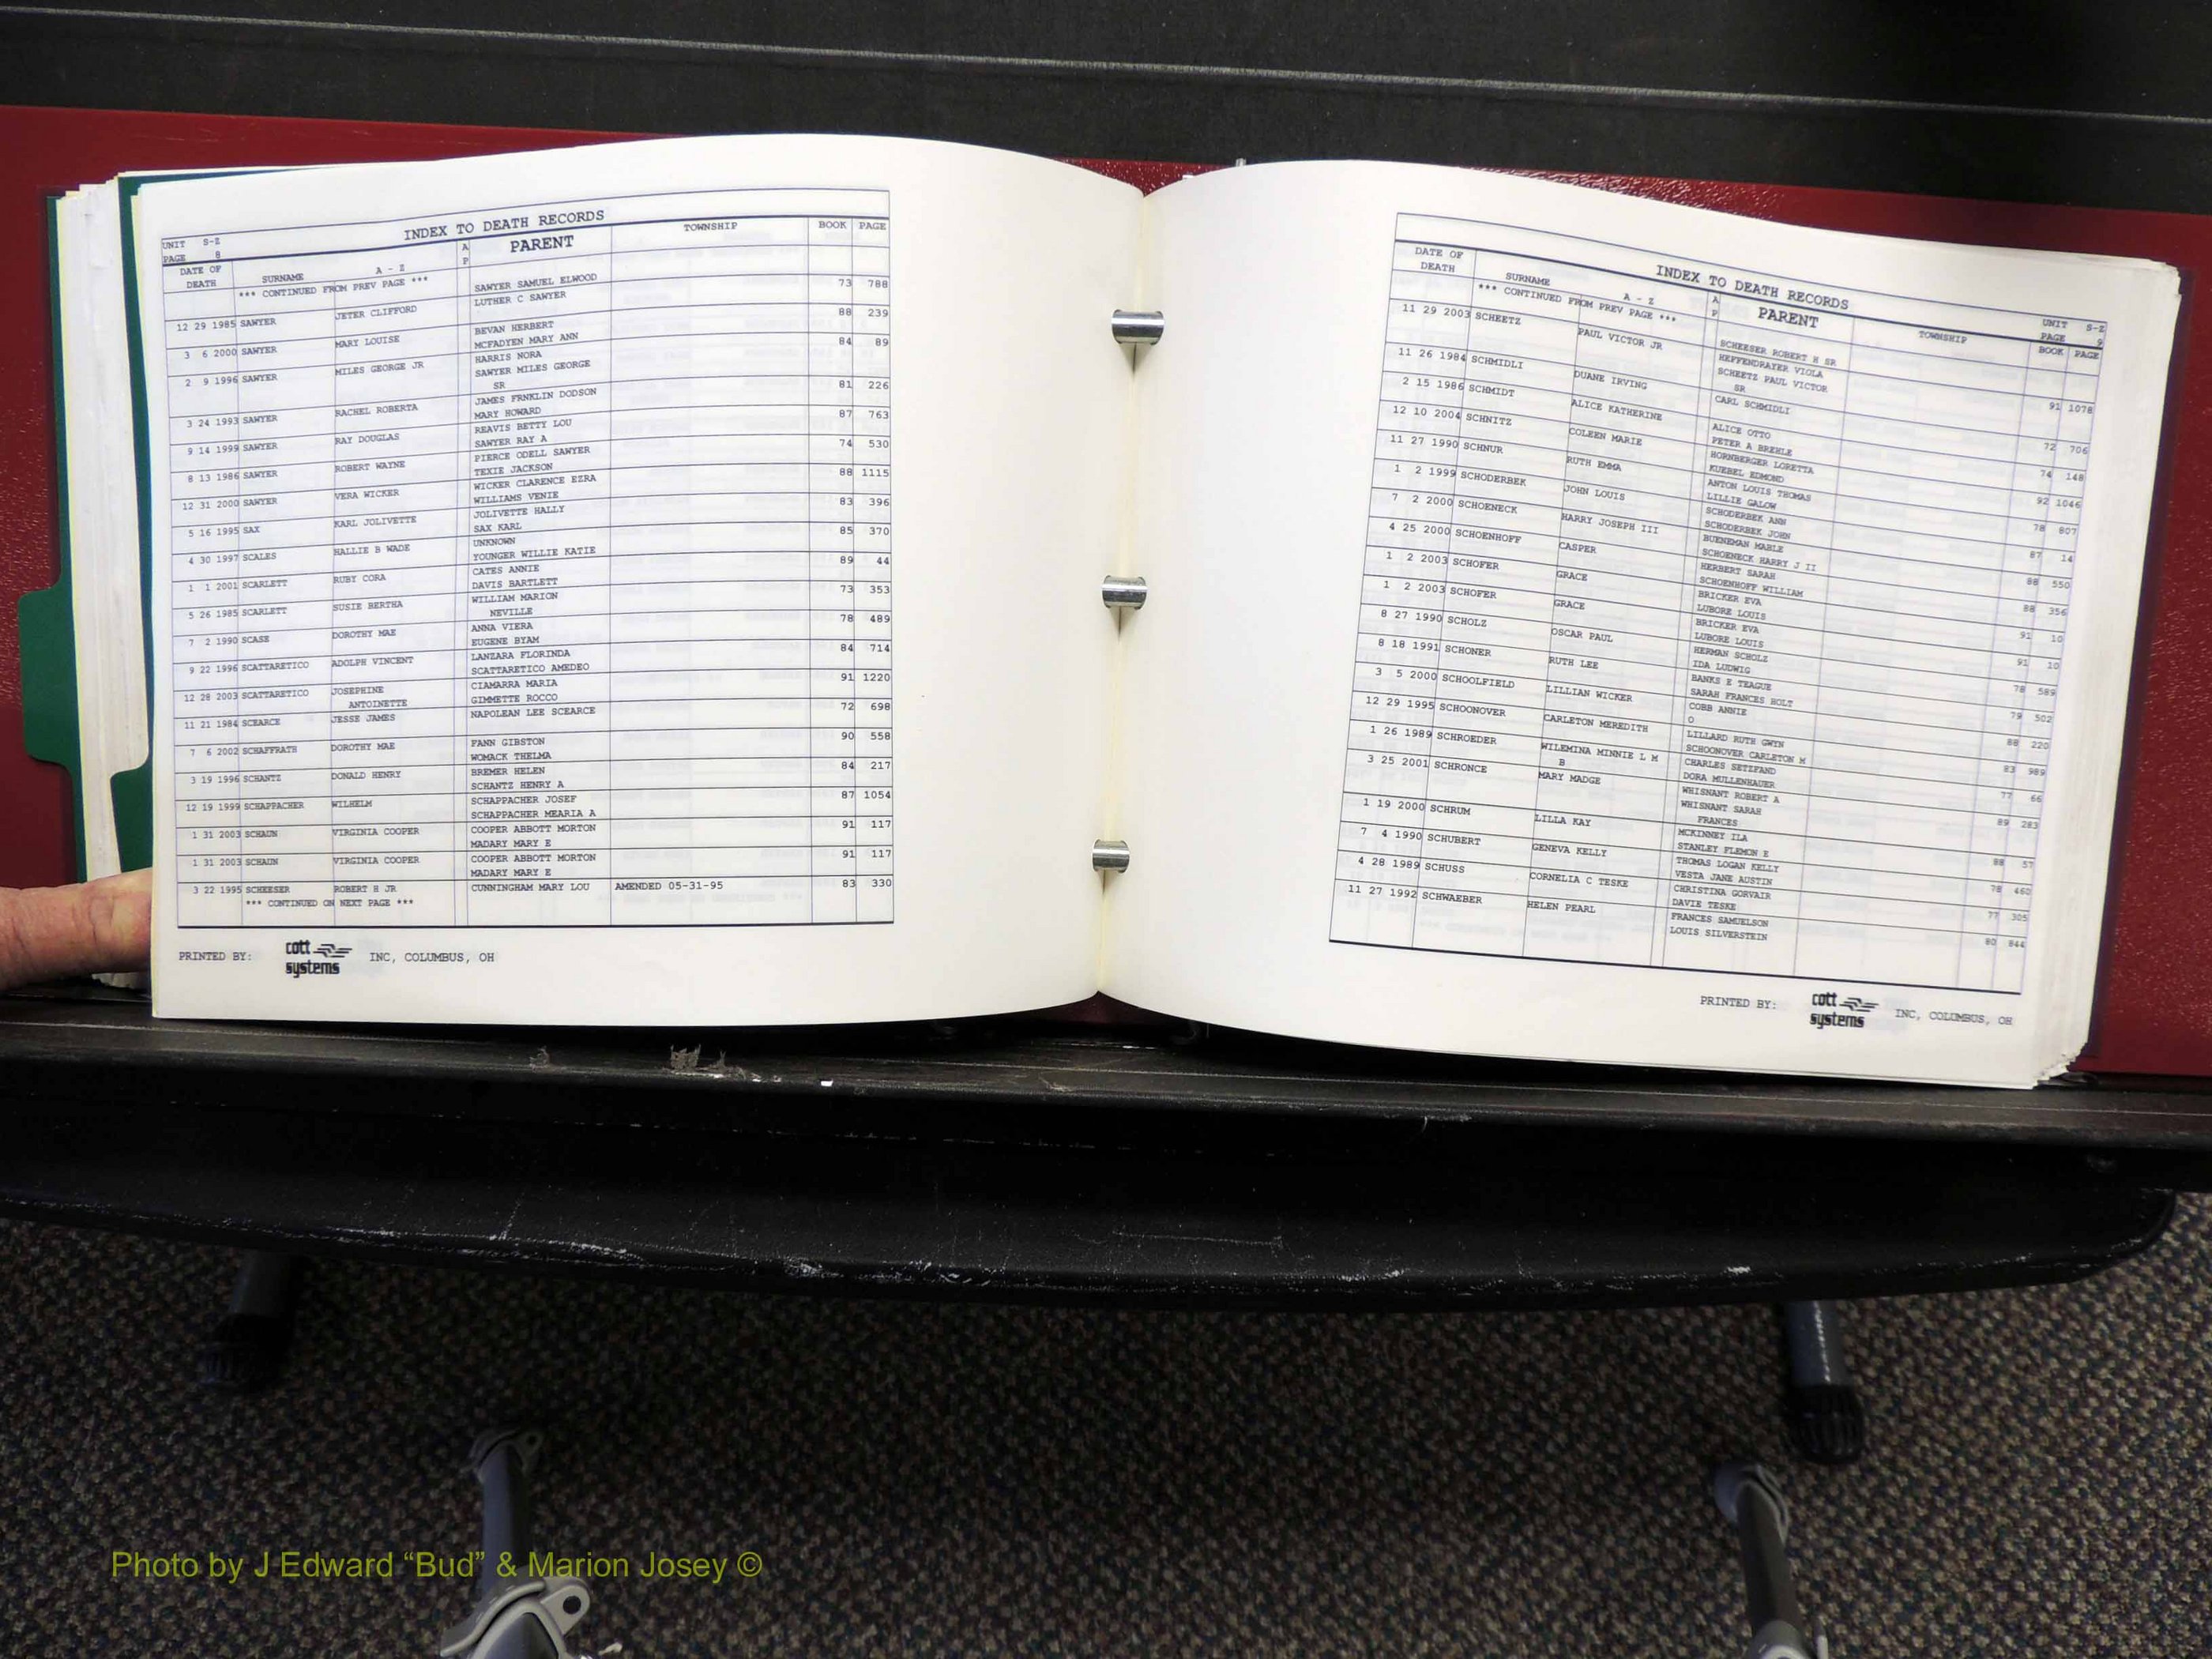 INDEX TO DEATH RECORDS
UNIT S-Z
PAGE 8
DATE OF DEATH SURNAME A - Z A P PARENT TOWNSHIP BOOK PAGE
*** CONTINUED FROM PREV PAGE *** SAWYER SAMUEL ELWOOD
12 29 1985 SAWYER JETER CLIFFORD LUTHER C SAWYER 73 788
3 6 2000 SAWYER MARY LOUISE BEVAN HERBERT 88 239
MCFADYEN MARY ANN
2 9 1996 SAWYER MILES GEORGE JR HARRIS NORA 84 89
SAWYER MILES GEORGE
SR
3 24 1993 SAWYER RACHEL ROBERTA JAMES FRNKLIN DODSON 81 226
MARY HOWARD
9 14 1999 SAWYER RAY DOUGLAS REAVIS BETTY LOU 87 763
SAWYER RAY A
8 13 1986 SAWYER ROBERT WAYNE PIERCE ODELL SAWYER 74 530
TEXIE JACKSON
12 31 2000 SAWYER VERA WICKER WICKER CLARENCE EZRA 88 1115
WILLIAMS VENIE
5 16 1995 SAX KARL JOLIVETTE JOLIVETTE HALLY 83 396
SAX KARL
4 30 1997 SCALES HALLIE B WADE UNKNOWN 85 370
YOUNGER WILLIE KATIE
1 1 2001 SCARLETT RUBY CORA CATES ANNIE 89 44
DAVIS BARTLETT
5 26 1985 SCARLETT SUSIE BERTHA WILLIAM MARION 73 353
NEVILLE
7 2 1990 SCASE DOROTHY MAE ANNA VIERA 78 489
EUGENE BYAM
9 22 1996 SCATTARETICO ADOLPH VINCENT LANZARA FLORINDA 84 714
SCATTARETICO AMEDEO
12 28 2003 SCATTARETICO JOSEPHINE CIAMARRA MARIA 91 1220
ANTOINETTE GIMMETTE ROCCO
11 21 1984 SCEARCE JESSE JAMES NAPOLEAN LEE SCEARCE 72 698
7 6 2002 SCHAFFRATH DOROTHY MAE FANN GIBSTON 90 558
WOMACK THELMA
3 19 1996 SCHANTZ DONALD HENRY BREMER HELEN 84 217
SCHANTZ HENRY A
12 19 1999 SCHAPPACHER WILHELM SCHAPPACHER JOSEF 87 1054
SCHAPPACHER MEARIA A
1 31 2003 SCHAUN VIRGINIA COOPER COOPER ABBOTT MORTON 91 117
MADARY MARY E
1 31 2003 SCHAUN VIRGINIA COOPER COOPER ABBOTT MORTON 91 117
MADARY MARY E
3 22 1995 SCHEESER ROBERT H JR CUNNINGHAM MARY LOU AMENDED 05-31-95 83 330
*** CONTINUED ON NEXT PAGE ***
PRINTED BY: cott systems INC, COLUMBUS, OH
INDEX TO DEATH RECORDS
UNIT S-Z
PAGE 9
DATE OF DEATH SURNAME A - Z A P PARENT TOWNSHIP BOOK PAGE
*** CONTINUED FROM PREV PAGE *** SCHEESER ROBERT H SR
11 29 2003 SCHEETZ PAUL VICTOR JR HEFFENDRAYER VIOLA 91 1078
SCHEETZ PAUL VICTOR
SR
11 26 1984 SCHMIDLI DUANE IRVING CARL SCHMIDLI 72 706
ALICE OTTO
2 15 1986 SCHMIDT ALICE KATHERINE PETER A BREHLE 74 148
12 10 2004 SCHNITZ COLEEN MARIE HORNBERGER LORETTA 92 1046
KUEBEL EDMOND
11 27 1990 SCHNUR RUTH EMMA ANTON LOUIS THOMAS 78 807
LILLIE GALOW
1 2 1999 SCHODERBEK JOHN LOUIS SCHODERBEK ANN 87 14
SCHODERBEK JOHN
7 2 2000 SCHOENECK HARRY JOSEPH III BUENEMAN MABLE 88 550
SCHOENECK HARRY J II
4 25 2000 SCHOENHOFF CASPER HERBERT SARAH 88 356
SCHOENHOFF WILLIAM
1 2 2003 SCHOFER GRACE BRICKER EVA 91 10
LUBORE LOUIS
1 2 2003 SCHOFER GRACE BRICKER EVA 91 10
LUBORE LOUIS
8 27 1990 SCHOLZ OSCAR PAUL HERMAN SCHOLZ 78 589
IDA LUDWIG
8 18 1991 SCHONER RUTH LEE BANKS E TEAGUE 79 502
SARAH FRANCES HOLT
3 5 2000 SCHOOLFIELD LILLIAN WICKER COBB ANNIE 88 220
O
12 29 1995 SCHOONOVER CARLETON MEREDITH LILLARD RUTH GWYN 83 989
SCHOONOVER CARLETON M
1 26 1989 SCHROEDER WILEMINA MINNIE L M CHARLES SETZFAND 77 66
B DORA MULLENHAUER
3 25 2001 SCHRONCE MARY MADGE WHISNANT ROBERT A 89 283
WHISNANT SARAH
FRANCES
1 19 2000 SCHRUM LILLA KAY MCKINNEY ILA 88 57
STANLEY FLEMON E
7 4 1990 SCHUBERT GENEVA KELLY THOMAS LOGAN KELLY 78 460
VESTA JANE AUSTIN
4 28 1989 SCHUSS CORNELIA C TESKE CHRISTINA GORVAIR 77 305
DAVIE TESKE
11 27 1992 SCHWAEBER HELEN PEARL FRANCES SAMUELSON 80 844
LOUIS SILVERSTEIN
PRINTED BY: cott systems INC, COLUMBUS, OH
Photo by J Edward “Bud” & Marion Josey ©